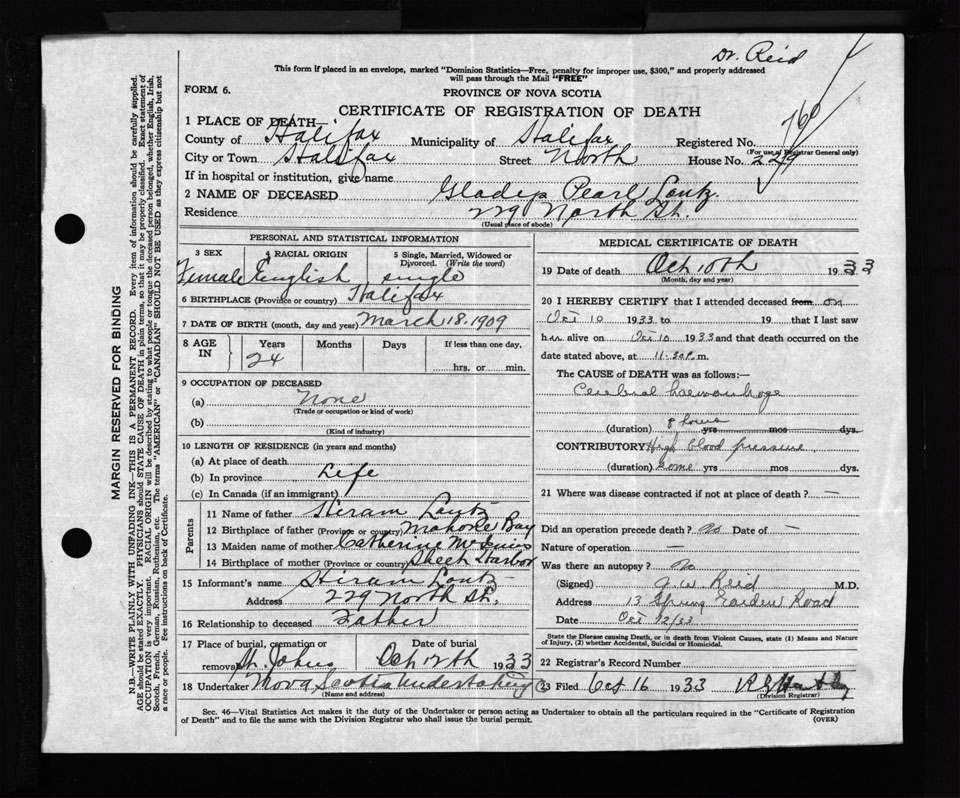 Dr. Reid
This form if placed in an envelope, marked "Dominion Statistics—Free, penalty for improper use, $300," and properly addressed
will pass through the Mail "FREE"
FORM 6.
PROVINCE OF NOVA SCOTIA
CERTIFICATE OF REGISTRATION OF DEATH
1 PLACE OF DEATH—
County of Halifax Municipality of Halifax Registered No. 760
(For use of Registrar General only)
City or Town Halifax Street North House No. 229
If in hospital or institution, give name
2 NAME OF DECEASED Gladys Pearl Lantz.
Residence 229 North St.
(Usual place of abode)
PERSONAL AND STATISTICAL INFORMATION
3 SEX 4 RACIAL ORIGIN 5 Single, Married, Widowed or
Divorced. (Write the word)
Female English single
6 BIRTHPLACE (Province or country) Halifax
7 DATE OF BIRTH (month, day and year) March 18. 1909
8 AGE
IN
Years Months Days If less than one day,
24
hrs. or min.
9 OCCUPATION OF DECEASED
(a) None
(Trade or occupation or kind of work)
(b)
(Kind of industry)
10 LENGTH OF RESIDENCE (in years and months)
(a) At place of death
(b) In province Life
(c) In Canada (if an immigrant)
Parents
11 Name of father Hiram Lantz
12 Birthplace of father (Province or country) Mahone Bay
13 Maiden name of mother Catherine
14 Birthplace of mother (Province or country) Sheet Harbor
15 Informant's name Hiram Lantz
Address 229 North St.
16 Relationship to deceased Father
17 Place of burial, cremation or Date of burial
removal St. Johns Oct 12th 1933
18 Undertaker Nova Scotia Undertaking
(Name and address)
MEDICAL CERTIFICATE OF DEATH
19 Date of death Oct 10th 1933
(Month, day and year)
20 I HEREBY CERTIFY that I attended deceased from on
Oct 10 1933 to 19 that I last saw
her alive on Oct 10 1933 and that death occurred on the
date stated above, at 11.30 P. m.
The CAUSE of DEATH was as follows:
Cerebral haemorrhage
8 hours
(duration) yrs mos dys.
CONTRIBUTORY High blood pressure
(duration) some yrs mos dys.
21 Where was disease contracted if not at place of death? —
Did an operation precede death? No Date of —
Nature of operation —
Was there an autopsy? No
(Signed) Reid M.D.
Address 13 Spring Garden Road
Date Oct 12/33
State the Disease causing Death, or in death from Violent Causes, state (1) Means and Nature
of Injury, (2) whether Accidental, Suicidal or Homicidal.
22 Registrar's Record Number
23 Filed Oct 16 1933
(Division Registrar)
Sec. 46—Vital Statistics Act makes it the duty of the Undertaker or person acting as Undertaker to obtain all the particulars required in the "Certificate of Registration
of Death" and to file the same with the Division Registrar who shall issue the burial permit.
(OVER)
MARGIN RESERVED FOR BINDING
N.B.—WRITE PLAINLY WITH UNFADING INK—THIS IS A PERMANENT RECORD. Every item of information should be carefully supplied.
AGE should be stated EXACTLY. PHYSICIANS should STATE CAUSE OF DEATH in plain terms, so that it may be properly classified. Exact statement of
OCCUPATION is very important. RACIAL ORIGIN will be described by stating to what people or tongue the deceased person belonged, whether English, Irish,
Scotch, French, German, Russian, Ruthenian, etc. The terms "AMERICAN" or "CANADIAN" SHOULD NOT BE USED as they express citizenship but not
a race or people. See instructions on back of Certificate.